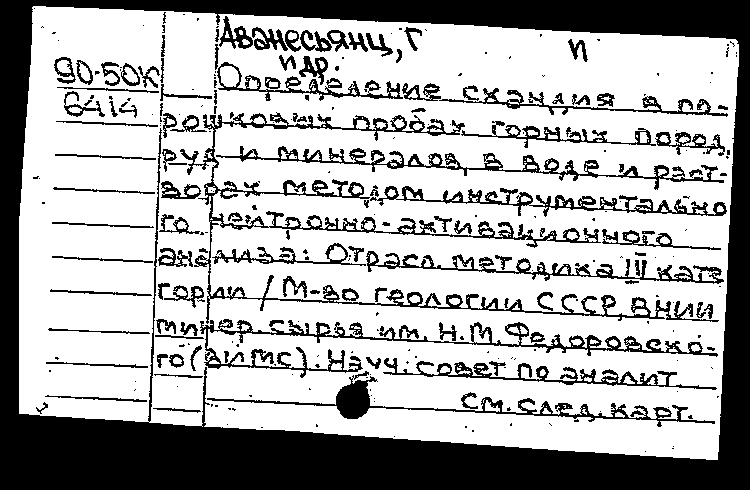 Аванесьянц, Г П
и др.
90-50К Определение скандия в по-
6414
рошковых пробах горных пород,
руд и минералов, в воде и раст-
ворах методом инструментально
го нейтронно-активационного
анализа: Отрасл. методика IV кате
гории / М-во геологии СССР, ВНИИ
минер. сырья им. Н.М. Федоровско-
го (ВИМС). Науч. совет по аналит.
См. след. карт.